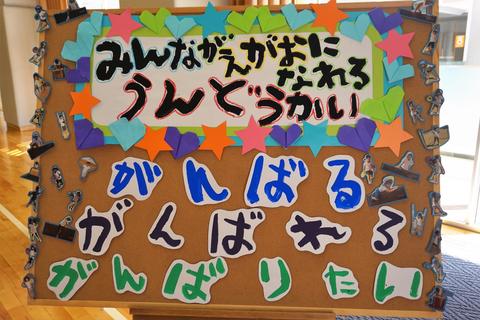 みんながえがおに
なれる
うんどうかい
がんばる
がんばれる
がんばりたい